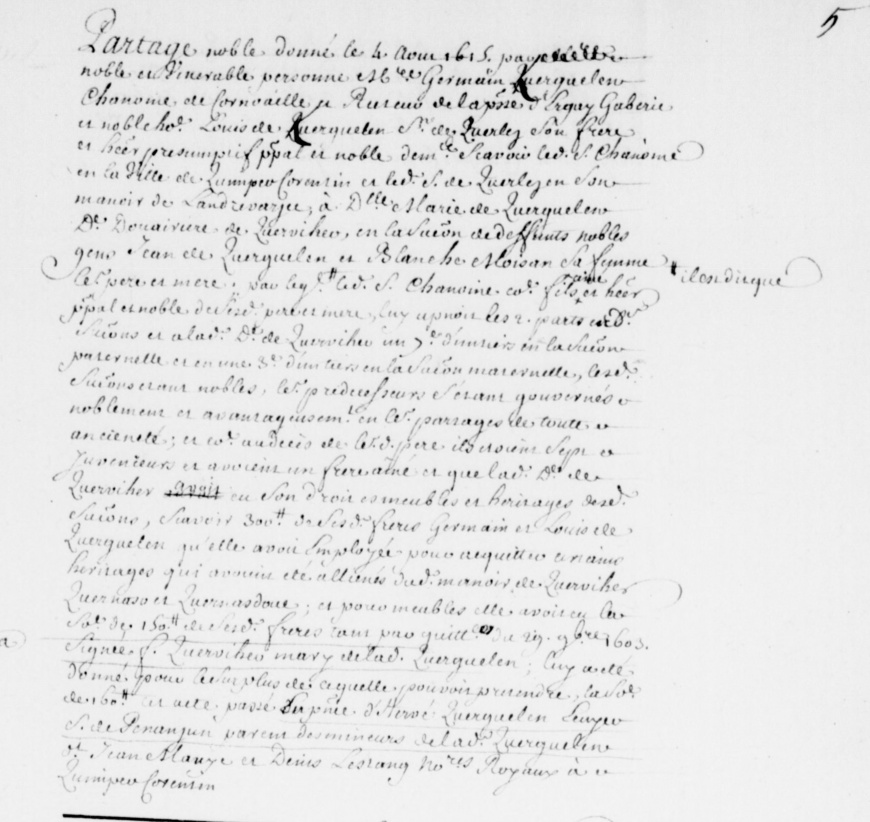 5
Partage noble donné le 4 Aout 1615. par
noble et Venerable personne Me. Germain Querguelen
Chanoine de Cornoaille et Recteur de la psse d'Ergay Gaberic
et noble ho. Louis de Querguelen Sr. de Querlez Son frere
et heer presumptif ppal et noble dem. Scavoir led. S. Chanoine
en la Ville de Quimper Corentin et led. S. de Querlezen Son
manoir de Landrevarzec, à Dlle Marie de Querguelen
De. Douairiere de Querviher, en la Suc͠on de deffunts nobles
gens Jean de Querguelen et Blanche Moisan Sa femme
les pere et mere. par leql. # led. S. Chanoine co. fils ainé et heer # il est dit que
ppal et noble de Sesd. pere et mere, luy apnoit les 2. parts esd.
Suc͠ons et a lad. De. de Querviher un 7e. d'un tiers en la Suc͠on
paternelle et en une 3e. d'un tiers en la Suc͠on maternelle, lesd.
Suc͠ons etant nobles, les predecesseurs S'étant gouvernés
noblement et avantageusemt. en les partages de toute
ancieneté; et co. au decés de led. pere ils etoient Sept
Juveigneurs et avoient un frere ainé et que lad. De. de
Querviher avoit eu Son droit es meubles et heritages desd.
Suc͠ons, Scavoir 300# de Sesd. freres Germain et Louis de
Querguelen qu'elle avoit Employée pour acquitter certains
heritages qui avoient été alliénés dud. manoir de Querviher
Quernaso et Quernasdoue; et pour meubles elle avoit eu la
So. de 150# de Sesd. freres tant par quitt. du 29. 9bre 1603.
Signée f. Querviher mary de lad. Querguelen; luy a été
donné pour le Surplus de ce quelle pouvoit pretendre, la So.
de 160# cet acte passé En pnce d'Hervé Querguelen Ecuyer
S. de Penanjun parent des mineurs de lad. Querguelen
et Jean Mauze et Denis Lestang Nores Royaux à
Quimper Corentin
a